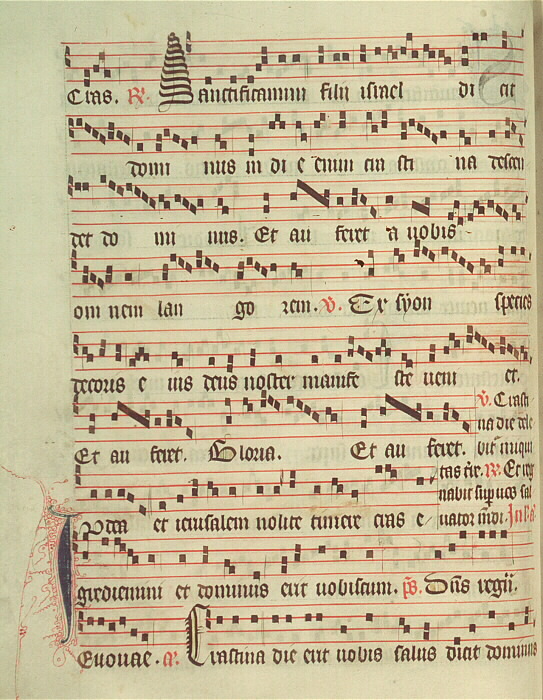 Cras. R. Sanctificamini filij israel di cit
domi nus in di e enim cra sti na descen
det do mi nus. Et au feret a uobis
om nem lan go rem. V. Ex syon species
decoris e ius deus noster manife ste ueni et.
Et au feret. Gloria. Et au feret.
V. Crasti
na die dele
bit iniqui
tas t're. R. Et reg
nabit sup uos sal
uator m'di.
Judea et ierusalem nolite timere cras e
grediemini et dominus erit uobiscum. ps. Dns regit.
Euouae. a. Crastina die erit uobis salus dicit dominus